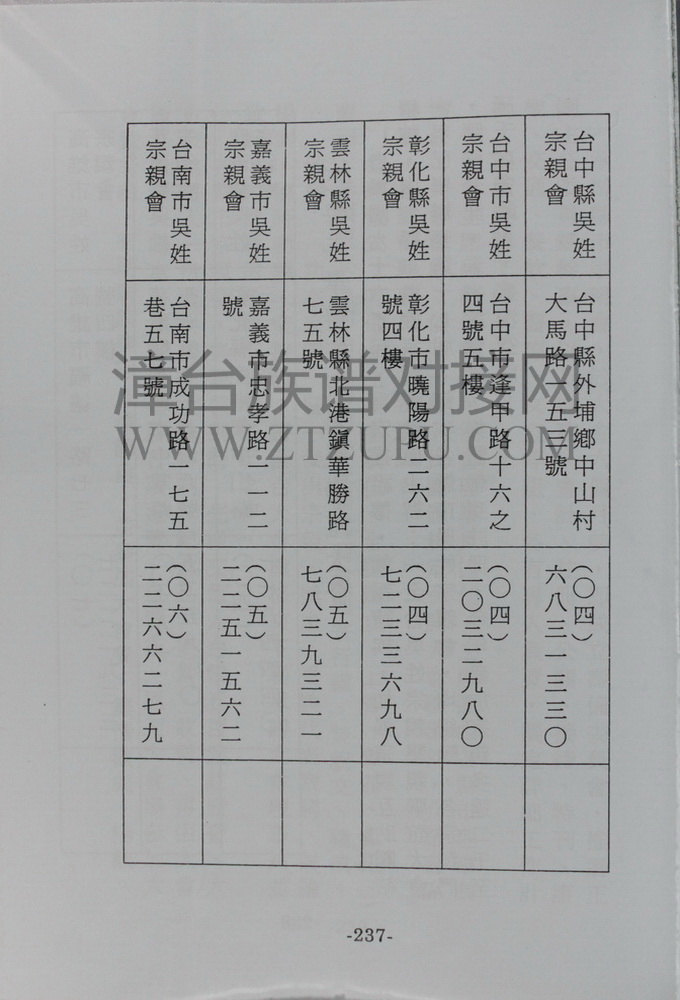 台中縣吳姓
宗親會
台中縣外埔鄉中山村
大馬路一五三號
(〇四)
六八三一三三〇
台中市吳姓
宗親會
台中市逢甲路十六之
四號五樓
(〇四)
二〇三二九八〇
彰化縣吳姓
宗親會
彰化市曉陽路二六二
號四樓
(〇四)
七二三三六九八
雲林縣吳姓
宗親會
雲林縣北港鎭華勝路
七五號
(〇五)
七八三九三二一
嘉義市吳姓
宗親會
嘉義市忠孝路一一二
號
(〇五)
二二五一五六二
台南市吳姓
宗親會
台南市成功路一七五
巷五七號
(〇六)
二二六六二七九
漳台族谱对接网
WWW.ZTZUPU.COM
-237-